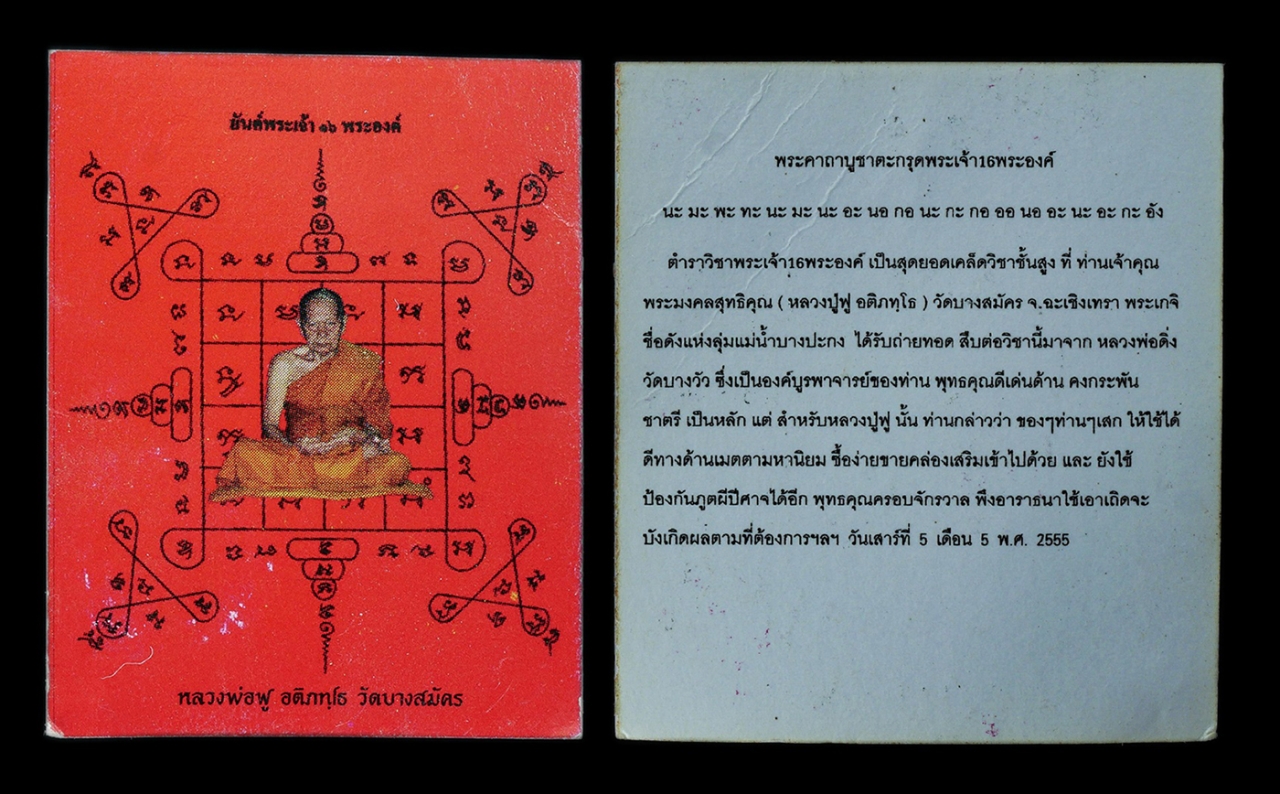 ยันต์พระเจ้า ๑๖ พระองค์
หลวงพ่อฟู อติภทฺโธ วัดบางสมัคร
พระคาถาบูชาตะกรุดพระเจ้า16พระองค์
นะ มะ พะ ทะ นะ มะ นะ อะ นอ กอ นะ กะ กอ ออ นอ อะ นะ อะ กะ อัง
ตำราวิชาพระเจ้า16พระองค์ เป็นสุดยอดเคล็ดวิชาชั้นสูง ที่ ท่านเจ้าคุณ
พระมงคลสุทธิคุณ ( หลวงปู่ฟู อติภทฺโธ ) วัดบางสมัคร จ.ฉะเชิงเทรา พระเกจิ
ชื่อดังแห่งลุ่มแม่น้ำบางปะกง ได้รับถ่ายทอด สืบต่อวิชานี้มาจาก หลวงพ่อดิ่ง
วัดบางวัว ซึ่งเป็นองค์บูรพาจารย์ของท่าน พุทธคุณดีเด่นด้าน คงกระพัน
ชาตรี เป็นหลัก แต่ สำหรับหลวงปู่ฟู นั้น ท่านกล่าวว่า ของๆท่านๆเสก ให้ใช้ได้
ดีทางด้านเมตตามหานิยม ซื้อง่ายขายคล่องเสริมเข้าไปด้วย และ ยังใช้
ป้องกันภูตผีปีศาจได้อีก พุทธคุณครอบจักรวาล พึงอาราธนาใช้เอาเถิดจะ
บังเกิดผลตามที่ต้องการฯลฯ วันเสาร์ที่ 5 เดือน 5 พ.ศ. 2555